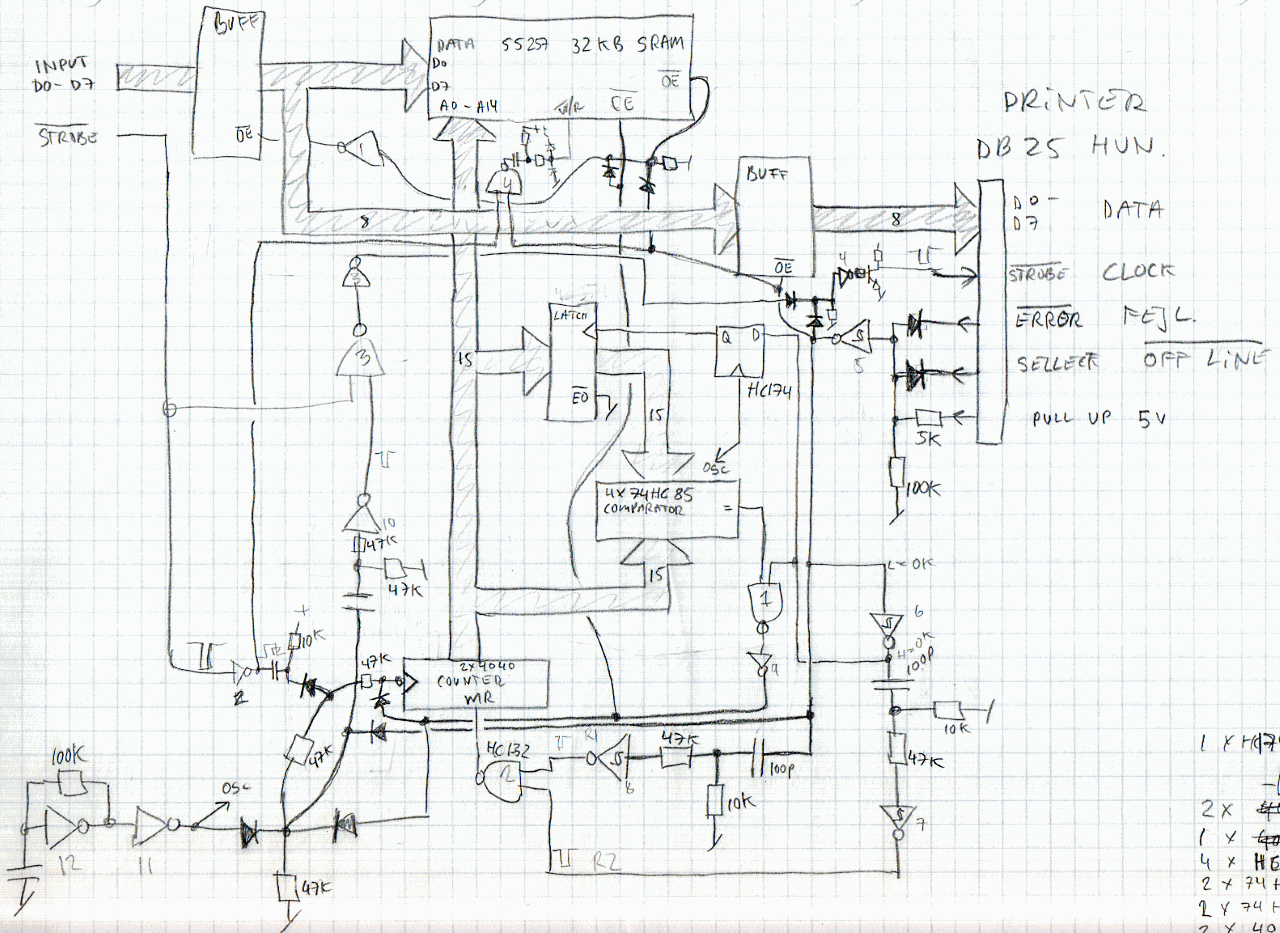 BUFF
INPUT
D0-D7
STROBE
OE
DATA 55257 32KB SRAM
D0
D7
A0-A14
W/R
CE
OE
+
1
4
8
BUFF
OE
8
PRINTER
DB25 HUN.
D0-
D7 DATA
STROBE CLOCK
ERROR FEJL.
SELLECT OFF LINE
PULL UP 5V
4
5
5K
100K
3
3
15
LATCH
EO
15
Q D
HC174
OSC
4X74HC85
COMPARATOR =
15
1
9
L=OK
6
H=OK
100P
10K
47K
7
10
47K
47K
+
10K
2
47K
2X4040
COUNTER
MR
47K
HC132
2
R1
8
47K
100P
10K
R2
100K
OSC
12
11
47K
1 X HC174
2 X
1 X
4 X HE
2 X 74H
1 X 74H
2 X 40